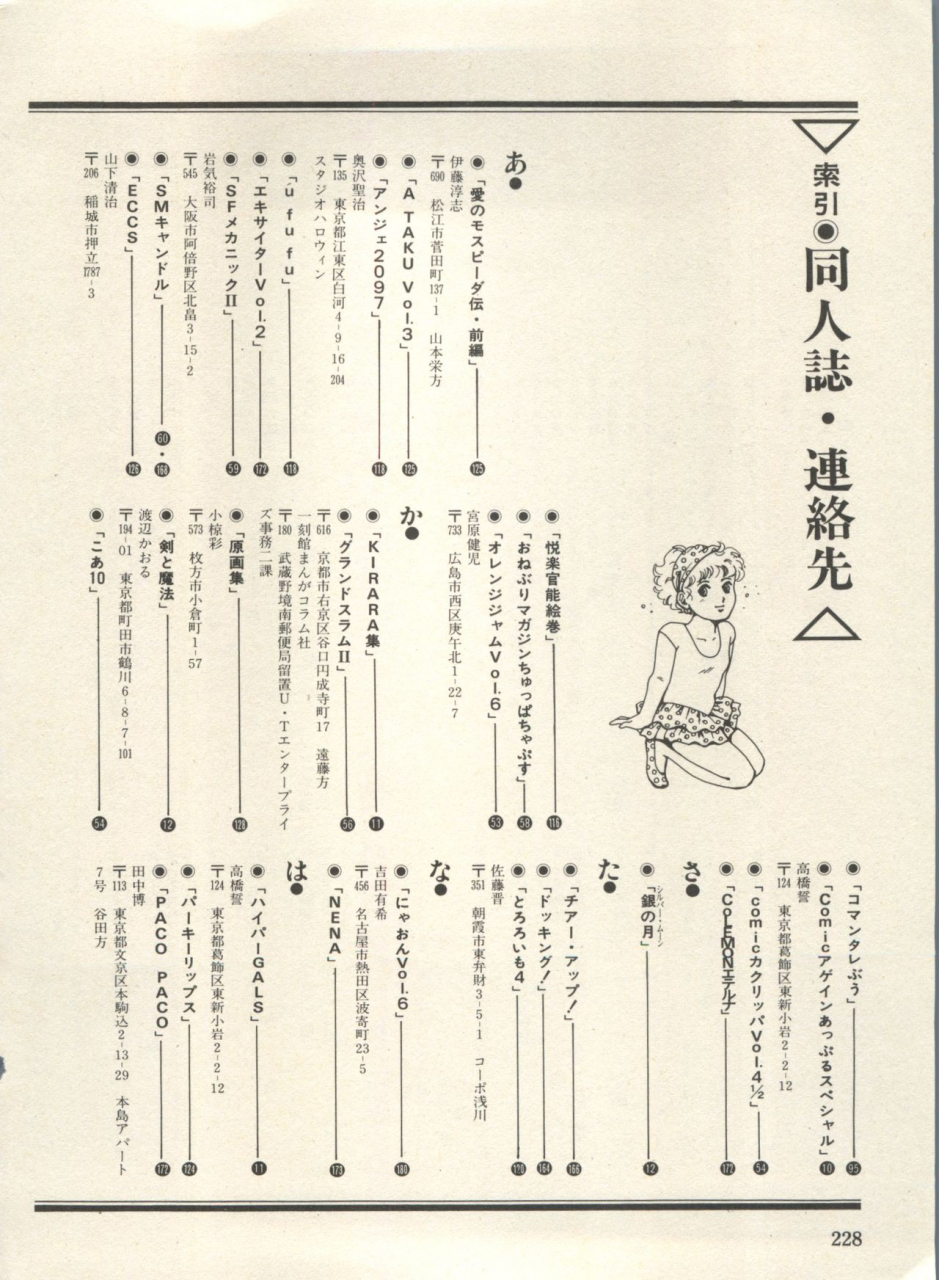 索引◉同人誌・連絡先
あ●
◉「愛のモスピーダ伝・前編」 125
伊藤淳志
〒690 松江市菅田町137-1 山本栄方
◉「A TAKU Vol.3」 125
◉「アンジェ2097」 118
奥沢聖治
〒135 東京都江東区白河4-9-16-204
スタジオハロウィン
◉「u fu fu」 118
◉「エキサイターVol.2」 172
◉「SFメカニックII」 59
岩気裕司
〒545 大阪市阿倍野区北畠3-15-2
◉「SMキャンドル」 60・168
◉「ECCS」 126
山下清治
〒206 稲城市押立1787-3
◉「悦楽官能絵巻」 118
◉「おねぶりマガジンちゅっぱちゃぷす」 58
◉「オレンジジャムVol.6」 53
宮原健児
〒733 広島市西区庚午北1-22-7
か●
◉「KIRARA集」 11
◉「グランドスラムII」 56
〒616 京都市右京区谷口円成寺町17 遠藤方
一刻館まんがコラム社
〒180 武蔵野境南郵便局留置U・Tエンタープライ
ズ事務二課
◉「原画集」 128
小椋彩
〒573 枚方市小倉町1-57
◉「剣と魔法」 12
渡辺かおる
〒194-01 東京都町田市鶴川6-8-7-101
◉「こあ10」 54
◉「コマンタレぶう」 95
◉「Comicアゲインあっぷるスペシャル」 10
高橋誓
〒124 東京都葛飾区東新小岩2-2-12
◉「comicカクリッパVol.4½」 54
◉「CoLEMONエテルナ」 172
さ●
◉「銀の月」 12
シルバー・ムーン
た●
◉「チアー・アップ!」 166
◉「ドッキング!」 164
◉「とろろいも4」 120
佐藤晋
〒351 朝霞市東弁財3-5-1 コーポ浅川
な●
◉「にゃおんVol.6」 180
吉田有希
〒456 名古屋市熱田区波寄町23-5
◉「NENA」 173
は●
◉「ハイパーGALS」 11
高橋誓
〒124 東京都葛飾区東新小岩2-2-12
◉「パーキーリップス」 124
◉「PACO PACO」 172
田中博
〒113 東京都文京区本駒込2-13-29 本島アパート
7号 谷田方
228